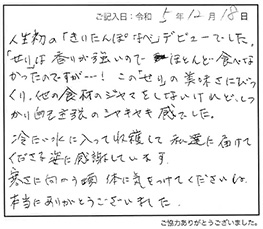 ご記入日：令和 5年 12月 18日
人生初の「きりたんぽなべ」デビューでした。
「せり」は香りが強いので ほとんど食べな
かったのですが…！この"せり"の美味さにびっ
くり。他の食材のジャマをしないけれど、しっ
かり自己主張のシャキシャキ感でした。
冷たい水に入って収穫して 私達に届けて
くださる姿に感謝しています。
寒さに向かう頃 体に気をつけてくださいね。
本当にありがとうございました。
ご協力ありがとうございました。